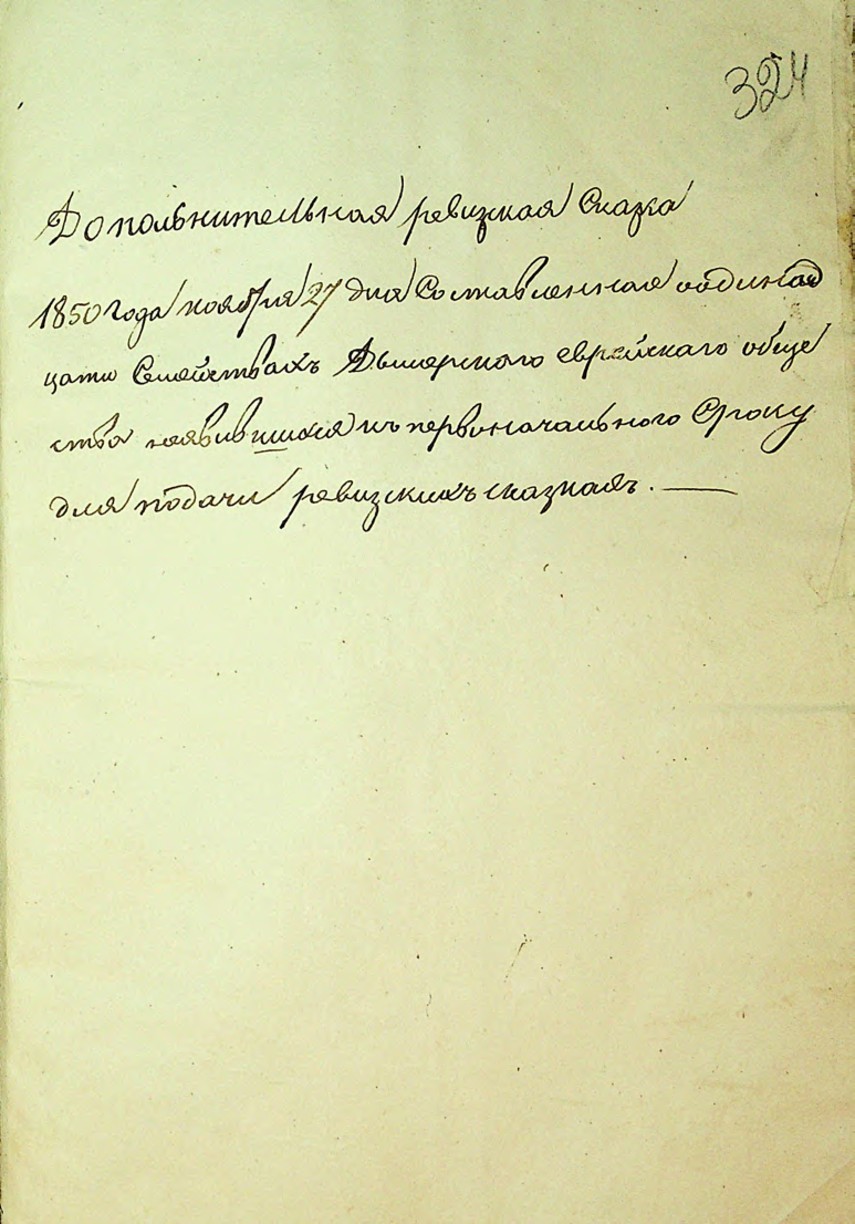 324
Дополнительная ревизская Сказка
1850 года ноября 27 дня Составленная оодинад
цати Семействахъ Дымерского еврейскаго обще
ства неявившихся къ первоначального Сроку
для подачи ревизскихъ сказкахъ. —